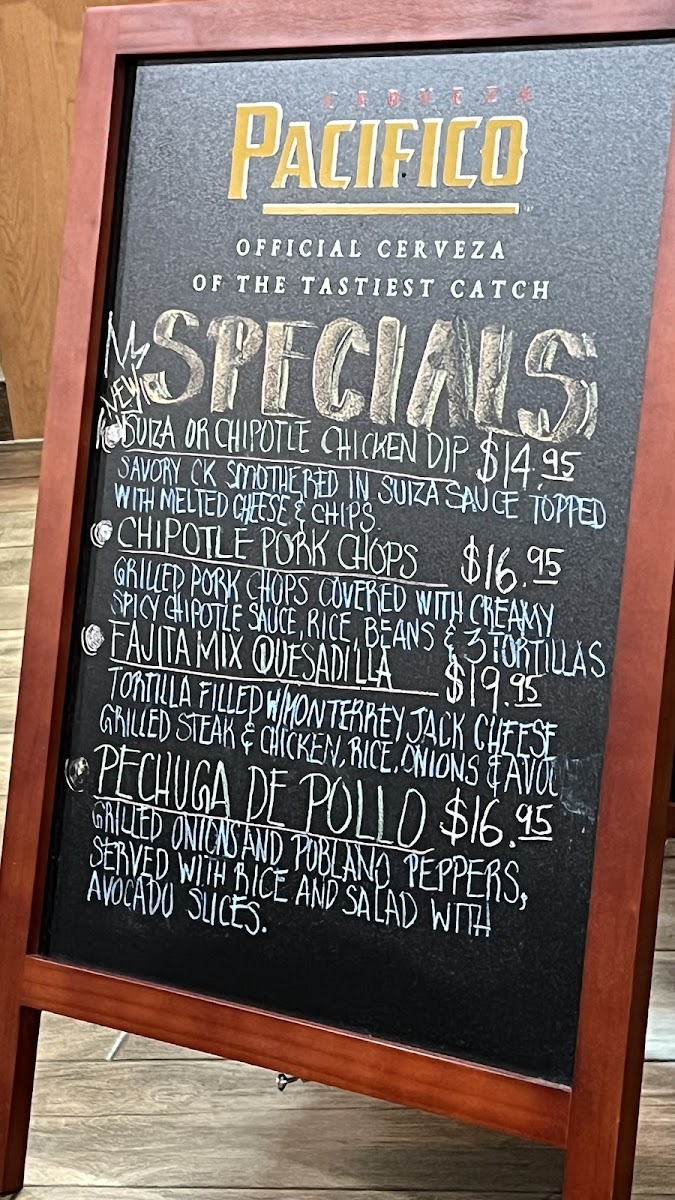 CERVEZA
PACIFICO
OFFICIAL CERVEZA
OF THE TASTIEST CATCH
SPECIALS
NEW
SUIZA OR CHIPOTLE CHICKEN DIP $14.95
SAVORY CK SMOTHERED IN SUIZA SAUCE TOPPED
WITH MELTED CHEESE & CHIPS.
CHIPOTLE PORK CHOPS $16.95
GRILLED PORK CHOPS COVERED WITH CREAMY
SPICY CHIPOTLE SAUCE, RICE, BEANS & 3 TORTILLAS
FAJITA MIX QUESADILLA $19.95
TORTILLA FILLED W/MONTERREY JACK CHEESE
GRILLED STEAK & CHICKEN, RICE, ONIONS & AVO
PECHUGA DE POLLO $16.95
GRILLED ONIONS AND POBLANO PEPPERS,
SERVED WITH RICE AND SALAD WITH
AVOCADO SLICES.